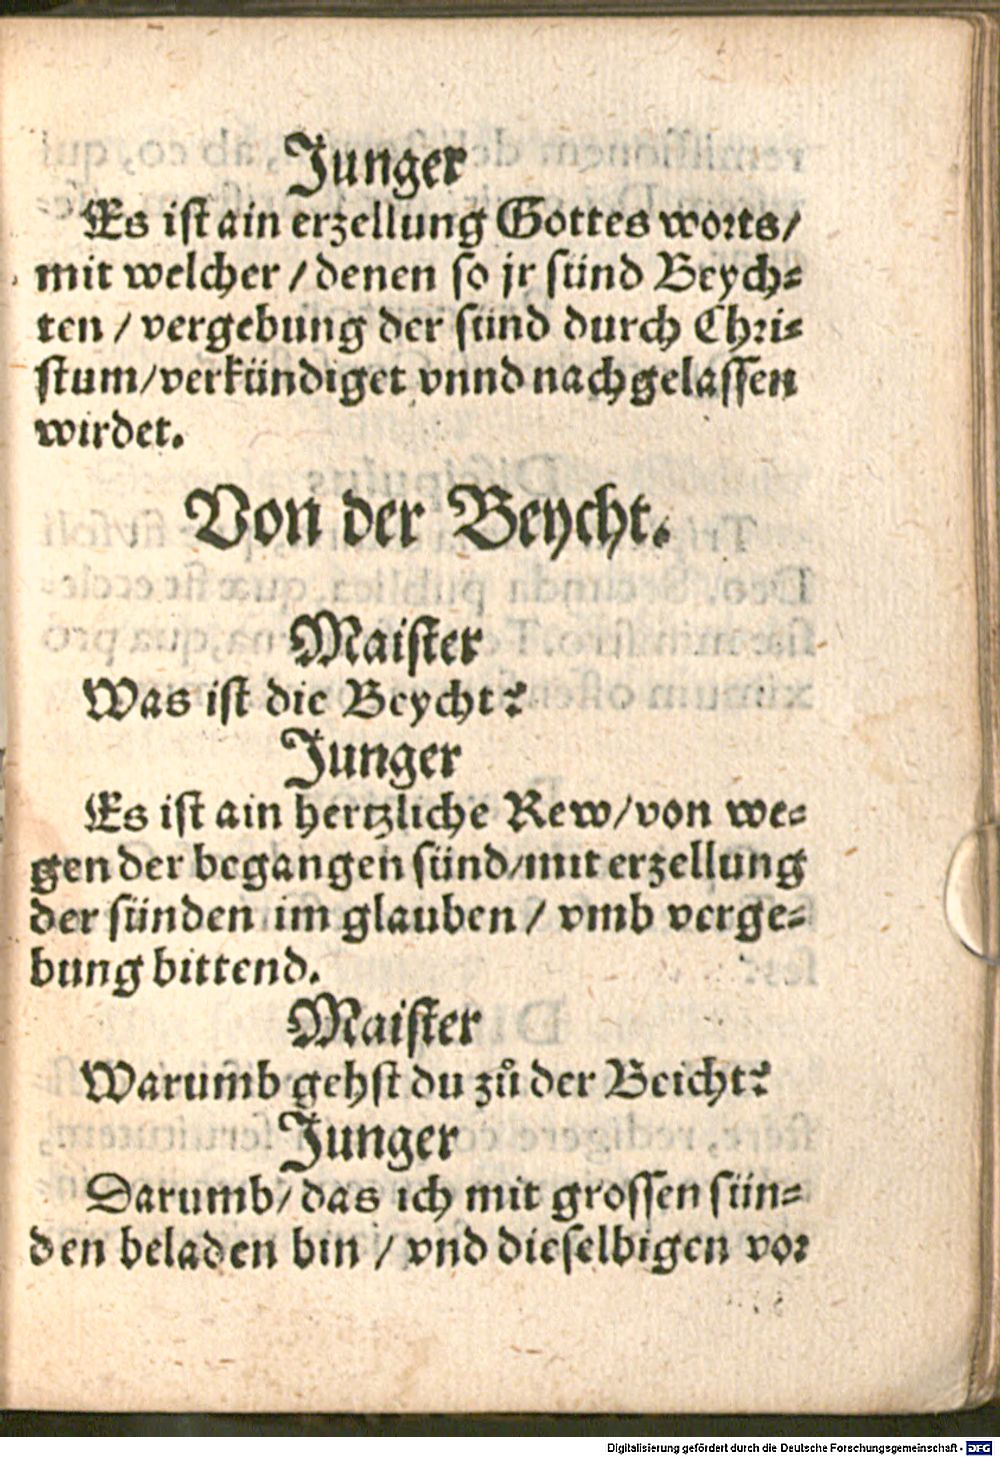 Junger
Es ist ain erzellung Gottes worts/
mit welcher / denen so jr sünd Beych-
ten / vergebung der sünd durch Chri-
stum/verkündiget vnnd nachgelassen
wirdet.
Von der Beycht.
Maister
Was ist die Beycht?
Junger
Es ist ain hertzliche Rew/von we-
gen der begangen sünd/mit erzellung
der sünden im glauben / vmb verge-
bung bittend.
Maister
Warumb gehst du zů der Beicht?
Junger
Darumb/das ich mit grossen sün-
den beladen bin / vnd dieselbigen vor
Digitalisierung gefördert durch die Deutsche Forschungsgemeinschaft - DFG